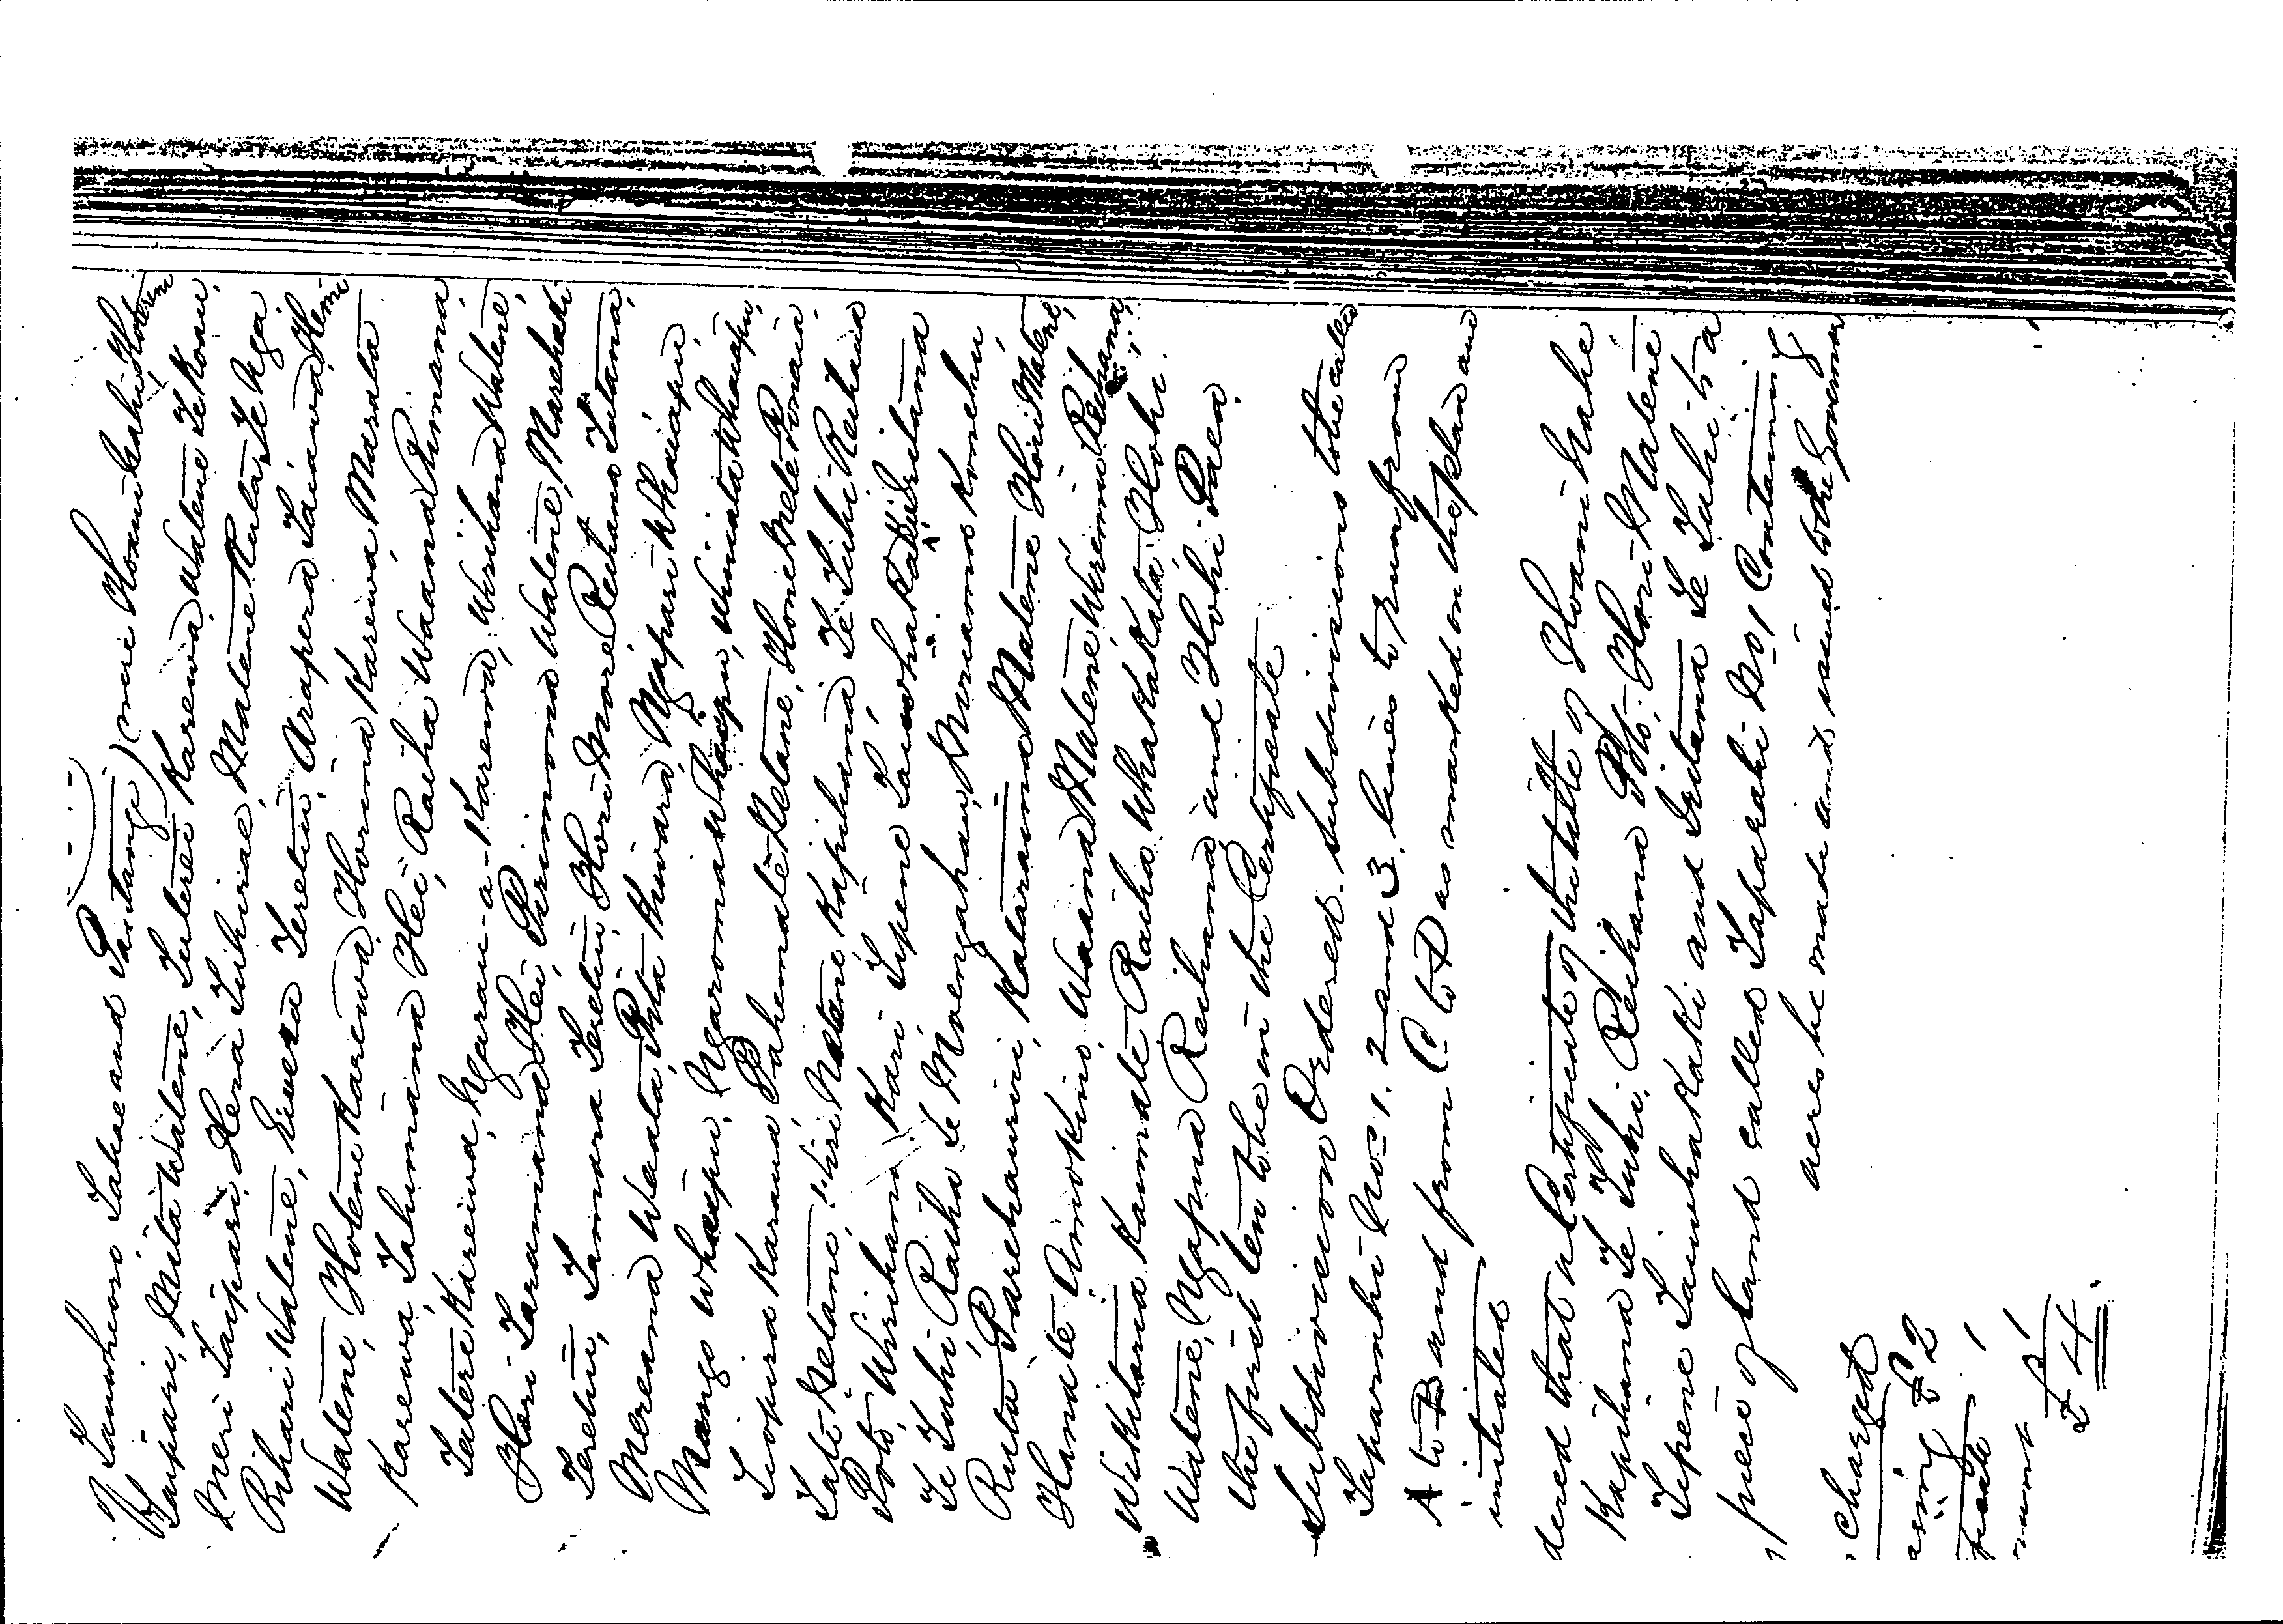 Tauwheoro Tahae and Paitangi) mei Honi Kahi, Hoterini
Taipari, Mita Watene, Tutere Karewa, Watene Te Kou,
Meri Taipari, Hera Tukiriae, Matene Ruta, Te Nga
Rihari Watene, Eruera Teretiu, Arapera Taiawa, Hemi
Watene, Hotene Karewa, Horima Karewa Marata
Karewa, Tahumana Hei, Raiha Waana Purimana,
Tutere Kareiwa, Ngarau-a-Karewa, Wirihana Watene,
Hori Taramana Hei, Purimona Watene, Marehahi
Teretiu, Tamara Teretiu, Hori More Reihana Tutana,
Mereana Waata, Pita Kawara, Ngapari Whauapu,
Mango Whaapu, Ngaroma Whaapu, Winiata Whauapu,
Teopira Karaua Pahemate Hetane, Hone Mete Ponaia,
Tati Hetane, Wiri Natene, Kapihana Te Tuhi Reihana
Poto, Wirihana Kari Tipene Tauwhakaki, Iritana
Te Tuhi, Raiha Te Moengahau, Miriama Konehu,
Ruta Parehauiri, Kataraina Matene Hori Matene,
Hamate Amokino, Waana Matene, Wiremu Reihana,
Wikitaria Kaimate Raiha Whakakata, Hohi
Watene, Ngapua Reihana and Hohi Paea.
the first ten to be in the Certificate
Subdivision Ordered. Subdivisions to be called
Taparahi Nos 1. 2 and 3. lines to run from
A to B and from C to D as marked on the plan and
initialed
dered that a Certificate of the title of Hoani Nahe
Kapihana Te Tuhi. Reihana Poto. Hori Matene
Tipene Tauwhakaki and Iritana Te Tuhi to a
piece of land called Taparahi No 1 Containing
acres be made and issued to the Governor
Charged
£2
1
1
£4